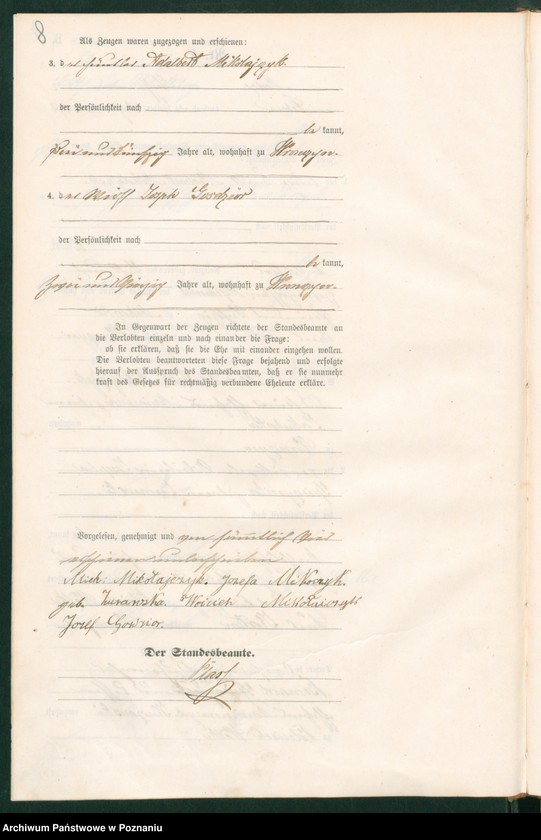 8
Als Zeugen waren zugezogen und erschienen:
3. der Häusler Adalbert Mikolajczyk
der Persönlichkeit nach
be kannt,
Jahre alt, wohnhaft zu
4. der Wirth Joseph
der Persönlichkeit nach
be kannt,
zwei und vierzig Jahre alt, wohnhaft zu
In Gegenwart der Zeugen richtete der Standesbeamte an
die Verlobten einzeln und nach einander die Frage:
ob sie erklären, daß sie die Ehe mit einander eingehen wollen.
Die Verlobten beantworteten diese Frage bejahend und erfolgte
hierauf der Ausspruch des Standesbeamten, daß er sie nunmehr
kraft des Gesetzes für rechtmäßig verbundene Eheleute erkläre.
Vorgelesen, genehmigt und von sämtlich
erschienen unterschrieben
Mich. Mikołajczyk. Jozefa
geb. Żurawska Wojciech
Jozef
Der Standesbeamte.
Archiwum Państwowe w Poznaniu